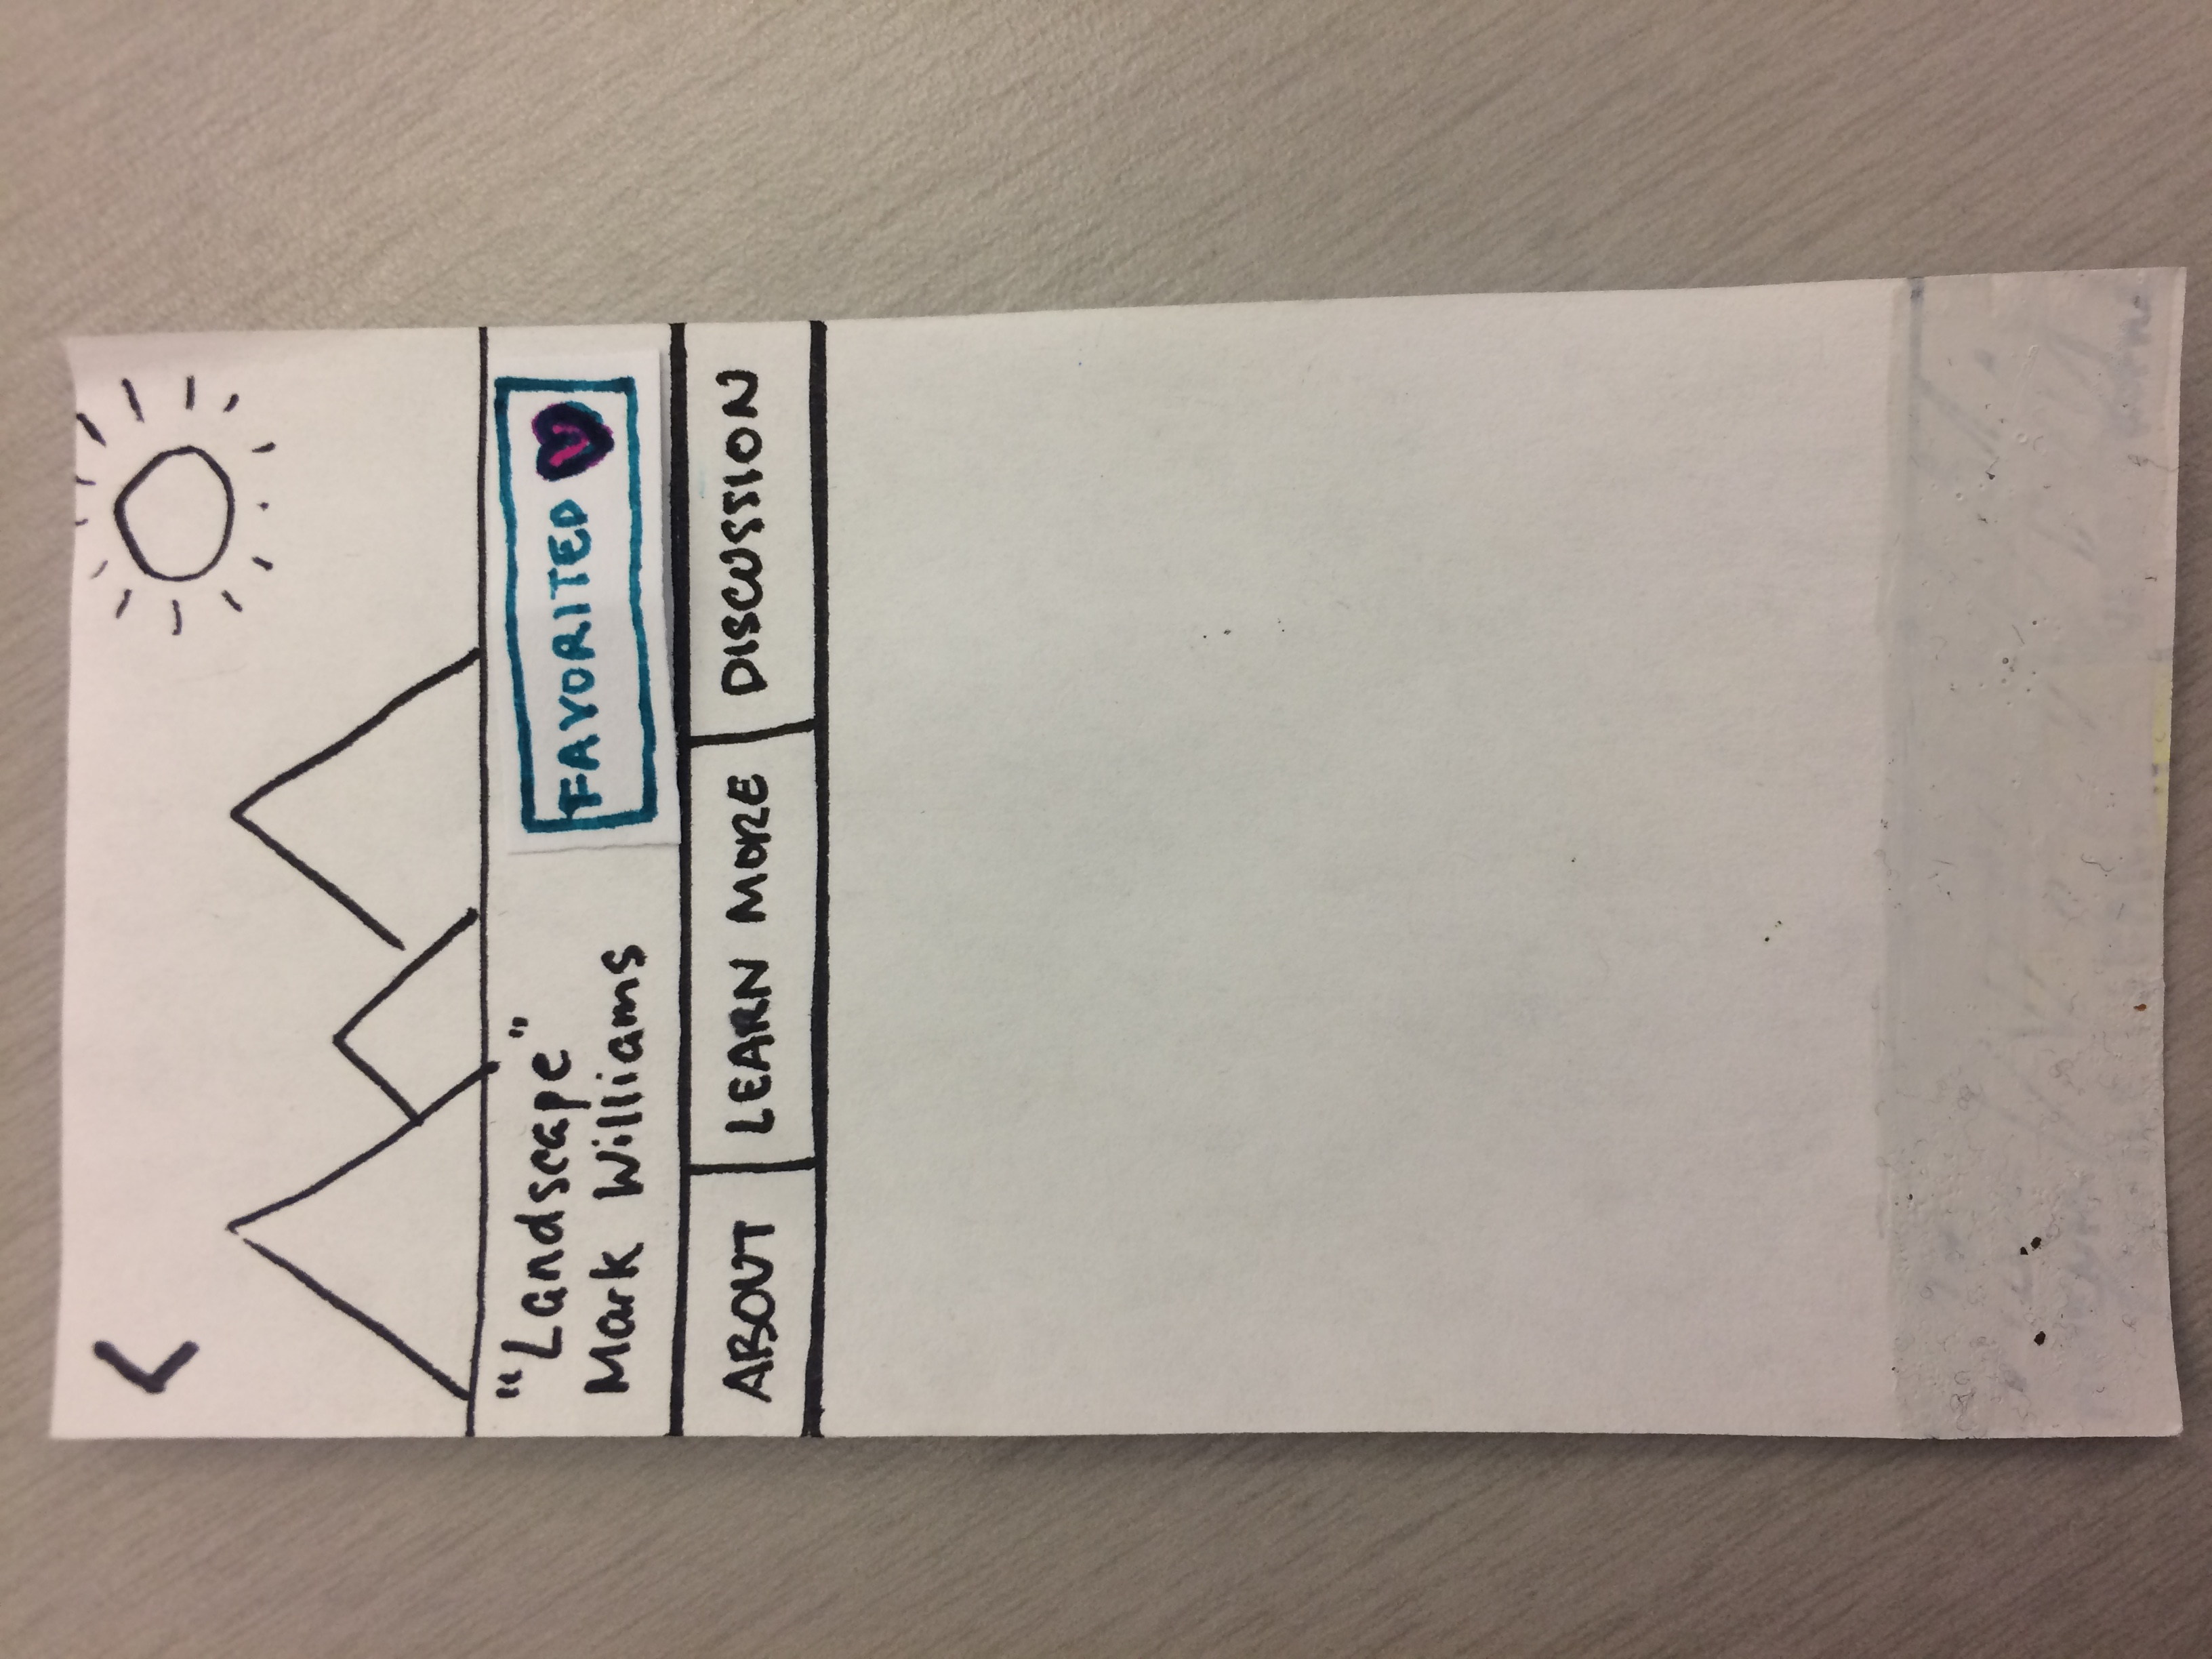 <
"Landscape"
Mark Williams
FAVORITED
ABOUT
LEARN MORE
DISCUSSION